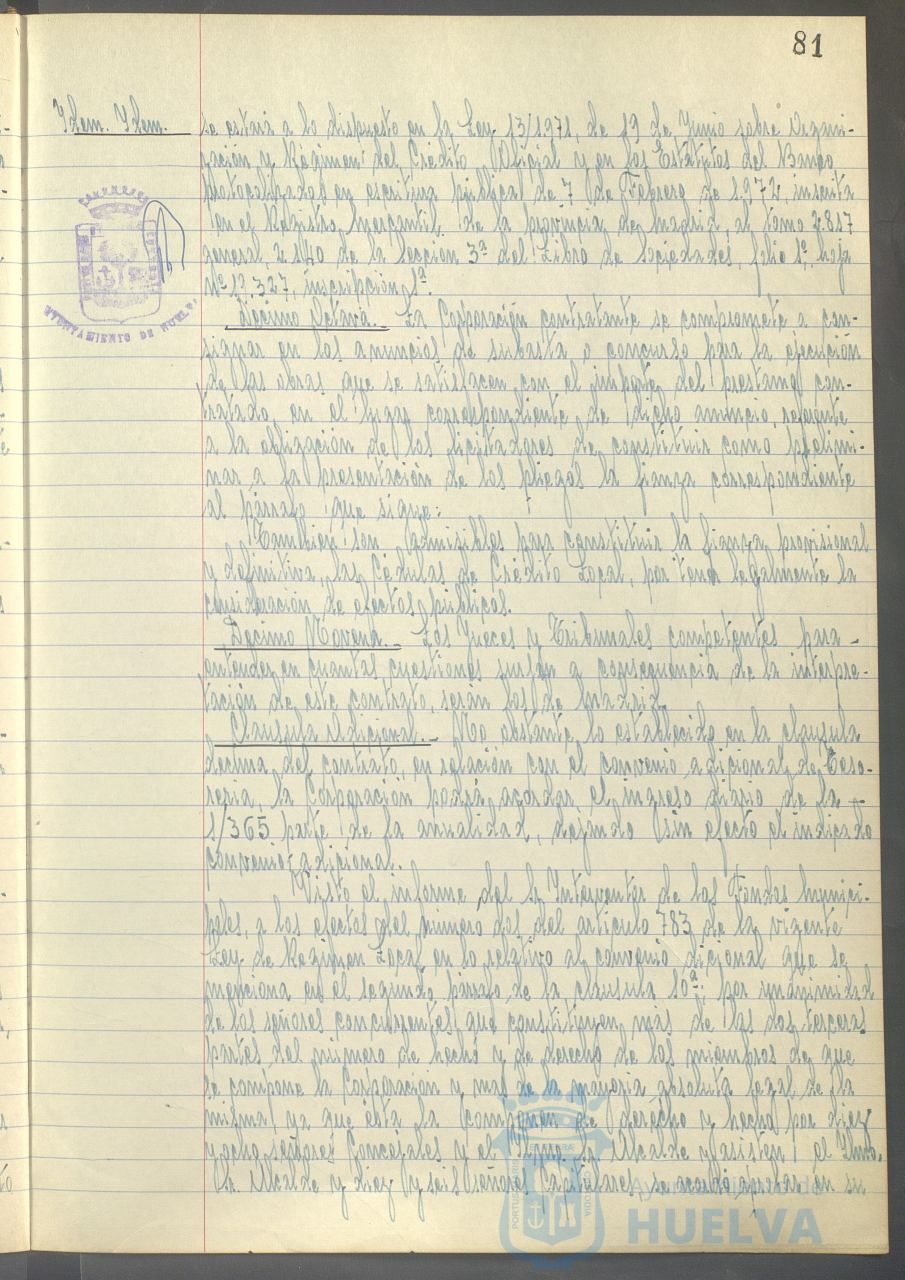 81
Idem. Idem.
se estará a lo dispuesto en la Ley 13/1971, de 19 de Junio sobre Organi-
zación y Régimen del Crédito Oficial y en los Estatutos del Banco
protocolizados en escritura pública de 7 de Febrero de 1.972, inscrita
en el Registro Mercantil de la provincia de Madrid, al tomo 2.817
general, 2.140 de la Sección 3ª del Libro de Sociedades, folio 1º, hoja
nº 17.327, inscripción 1ª.
AYUNTAMIENTO DE HUELVA
Décimo Octava.- La Corporación contratante se compromete a con-
signar en los anuncios de subasta o concurso para la ejecución
de las obras que se satisfacen con el importe del prestamo con-
tratado, en el lugar correspondiente de dicho anuncio, referente
a la obligación de los licitadores de constituir como prelimi-
nar a la presentación de los pliegos la fianza correspondiente
al párrafo que sigue:
Tambien son admisibles para constituir la fianza provisional
y definitiva, las Cédulas de Crédito Local, por tener legalmente la
consideración de efectos públicos.
Décimo Novena.- Los Jueces y Tribunales competentes para
entender en cuantas cuestiones surjan a consequencia de la interpre-
tación de este contrato, serán los de Madrid.
Clausula Adicional.- No obstante lo establecido en la clausula
decima del contrato, en relación con el convenio adicional de Teso-
reria, la Corporación podrá acordar el ingreso diario de la
1/365 parte de la anualidad, dejando sin efecto el indicado
convenio adicional.
Visto el informe del Sr Interventor de los Fondos Munici-
pales, a los efectos del número dos del articulo 783 de la vigente
Ley de Regimen Local en lo relativo al convenio dicional que se
menciona en el segundo párrafo de la clausula 10ª; por unanimidad
de los señores concurrentes que constituyen mas de las dos terceras
partes del número de hecho y de derecho de los miembros de que
se compone la Corporación y mas de la mayoria absoluta legal de la
misma ya que esta la componen de derecho y hecho por diez
y ocho señores Concejales y el Iltmo. Sr. Alcalde y asisten el Iltmo.
Sr. Alcalde y diez y seis señores Capitulares, se acordó aprobar en su
Ayuntamiento de
HUELVA